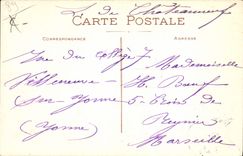 L. de Chateauneuf
CARTE POSTALE
CORRESPONDANCE
ADRESSE
Rue du collège 7
Villeneuve
sur Yonne
(Yonne)
Mademoiselle
H. Boeuf
5 de
Marseille